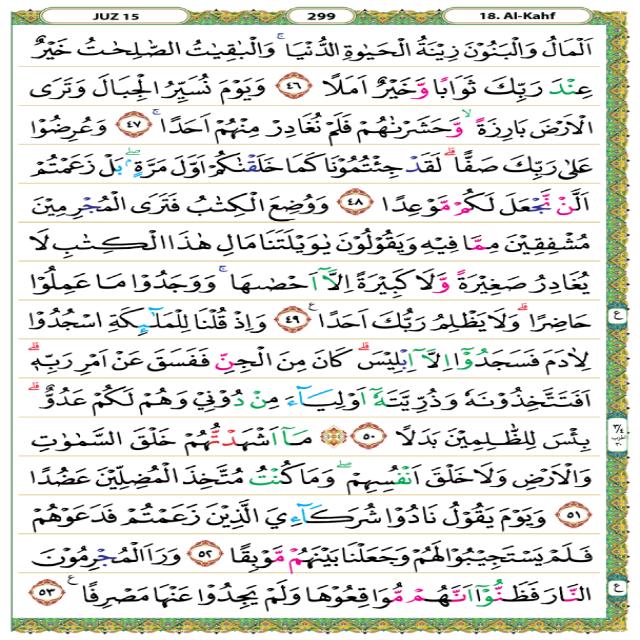 JUZ 15 299 18. Al-Kahf
اَلْمَالُ وَالْبَنُوْنَ زِيْنَةُ الْحَيٰوةِ الدُّنْيَاۚ وَالْبٰقِيٰتُ الصّٰلِحٰتُ خَيْرٌ
عِنْدَ رَبِّكَ ثَوَابًا وَّخَيْرٌ اَمَلًا ٤٦ وَيَوْمَ نُسَيِّرُ الْجِبَالَ وَتَرَى
الْاَرْضَ بَارِزَةًۙ وَّحَشَرْنٰهُمْ فَلَمْ نُغَادِرْ مِنْهُمْ اَحَدًاۚ ٤٧ وَعُرِضُوْا
عَلٰى رَبِّكَ صَفًّاۗ لَقَدْ جِئْتُمُوْنَا كَمَا خَلَقْنٰكُمْ اَوَّلَ مَرَّةٍۢۖ بَلْ زَعَمْتُمْ
اَلَّنْ نَّجْعَلَ لَكُمْ مَّوْعِدًا ٤٨ وَوُضِعَ الْكِتٰبُ فَتَرَى الْمُجْرِمِيْنَ
مُشْفِقِيْنَ مِمَّا فِيْهِ وَيَقُوْلُوْنَ يٰوَيْلَتَنَا مَالِ هٰذَا الْكِتٰبِ لَا
يُغَادِرُ صَغِيْرَةً وَّلَا كَبِيْرَةً اِلَّآ اَحْصٰىهَاۚ وَوَجَدُوْا مَا عَمِلُوْا
حَاضِرًاۗ وَلَا يَظْلِمُ رَبُّكَ اَحَدًا ࣖ ٤٩ وَاِذْ قُلْنَا لِلْمَلٰۤىِٕكَةِ اسْجُدُوْا
لِاٰدَمَ فَسَجَدُوْٓا اِلَّآ اِبْلِيْسَۗ كَانَ مِنَ الْجِنِّ فَفَسَقَ عَنْ اَمْرِ رَبِّهٖۗ
اَفَتَتَّخِذُوْنَهٗ وَذُرِّيَّتَهٗٓ اَوْلِيَاۤءَ مِنْ دُوْنِيْ وَهُمْ لَكُمْ عَدُوٌّۗ
بِئْسَ لِلظّٰلِمِيْنَ بَدَلًا ٥٠ ۞ مَآ اَشْهَدْتُّهُمْ خَلْقَ السَّمٰوٰتِ
وَالْاَرْضِ وَلَا خَلْقَ اَنْفُسِهِمْۖ وَمَا كُنْتُ مُتَّخِذَ الْمُضِلِّيْنَ عَضُدًا
٥١ وَيَوْمَ يَقُوْلُ نَادُوْا شُرَكَاۤءِيَ الَّذِيْنَ زَعَمْتُمْ فَدَعَوْهُمْ
فَلَمْ يَسْتَجِيْبُوْا لَهُمْ وَجَعَلْنَا بَيْنَهُمْ مَّوْبِقًا ٥٢ وَرَاَ الْمُجْرِمُوْنَ
النَّارَ فَظَنُّوْٓا اَنَّهُمْ مُّوَاقِعُوْهَا وَلَمْ يَجِدُوْا عَنْهَا مَصْرِفًا ࣖ ٥٣
ع
ع